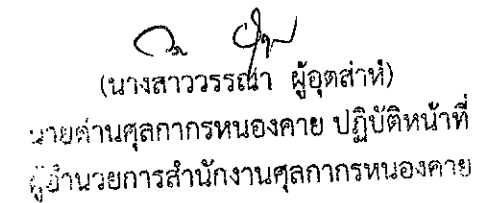 (นางสาววรรณา ผู้อุตส่าห์)
นายด่านศุลกากรหนองคาย ปฏิบัติหน้าที่
ผู้อำนวยการสำนักงานศุลกากรหนองคาย